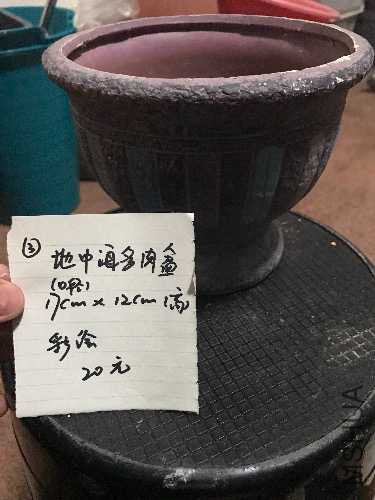 ③
地中海多肉盆
(口径)
17cm x 12cm (高)
彩绘
20元